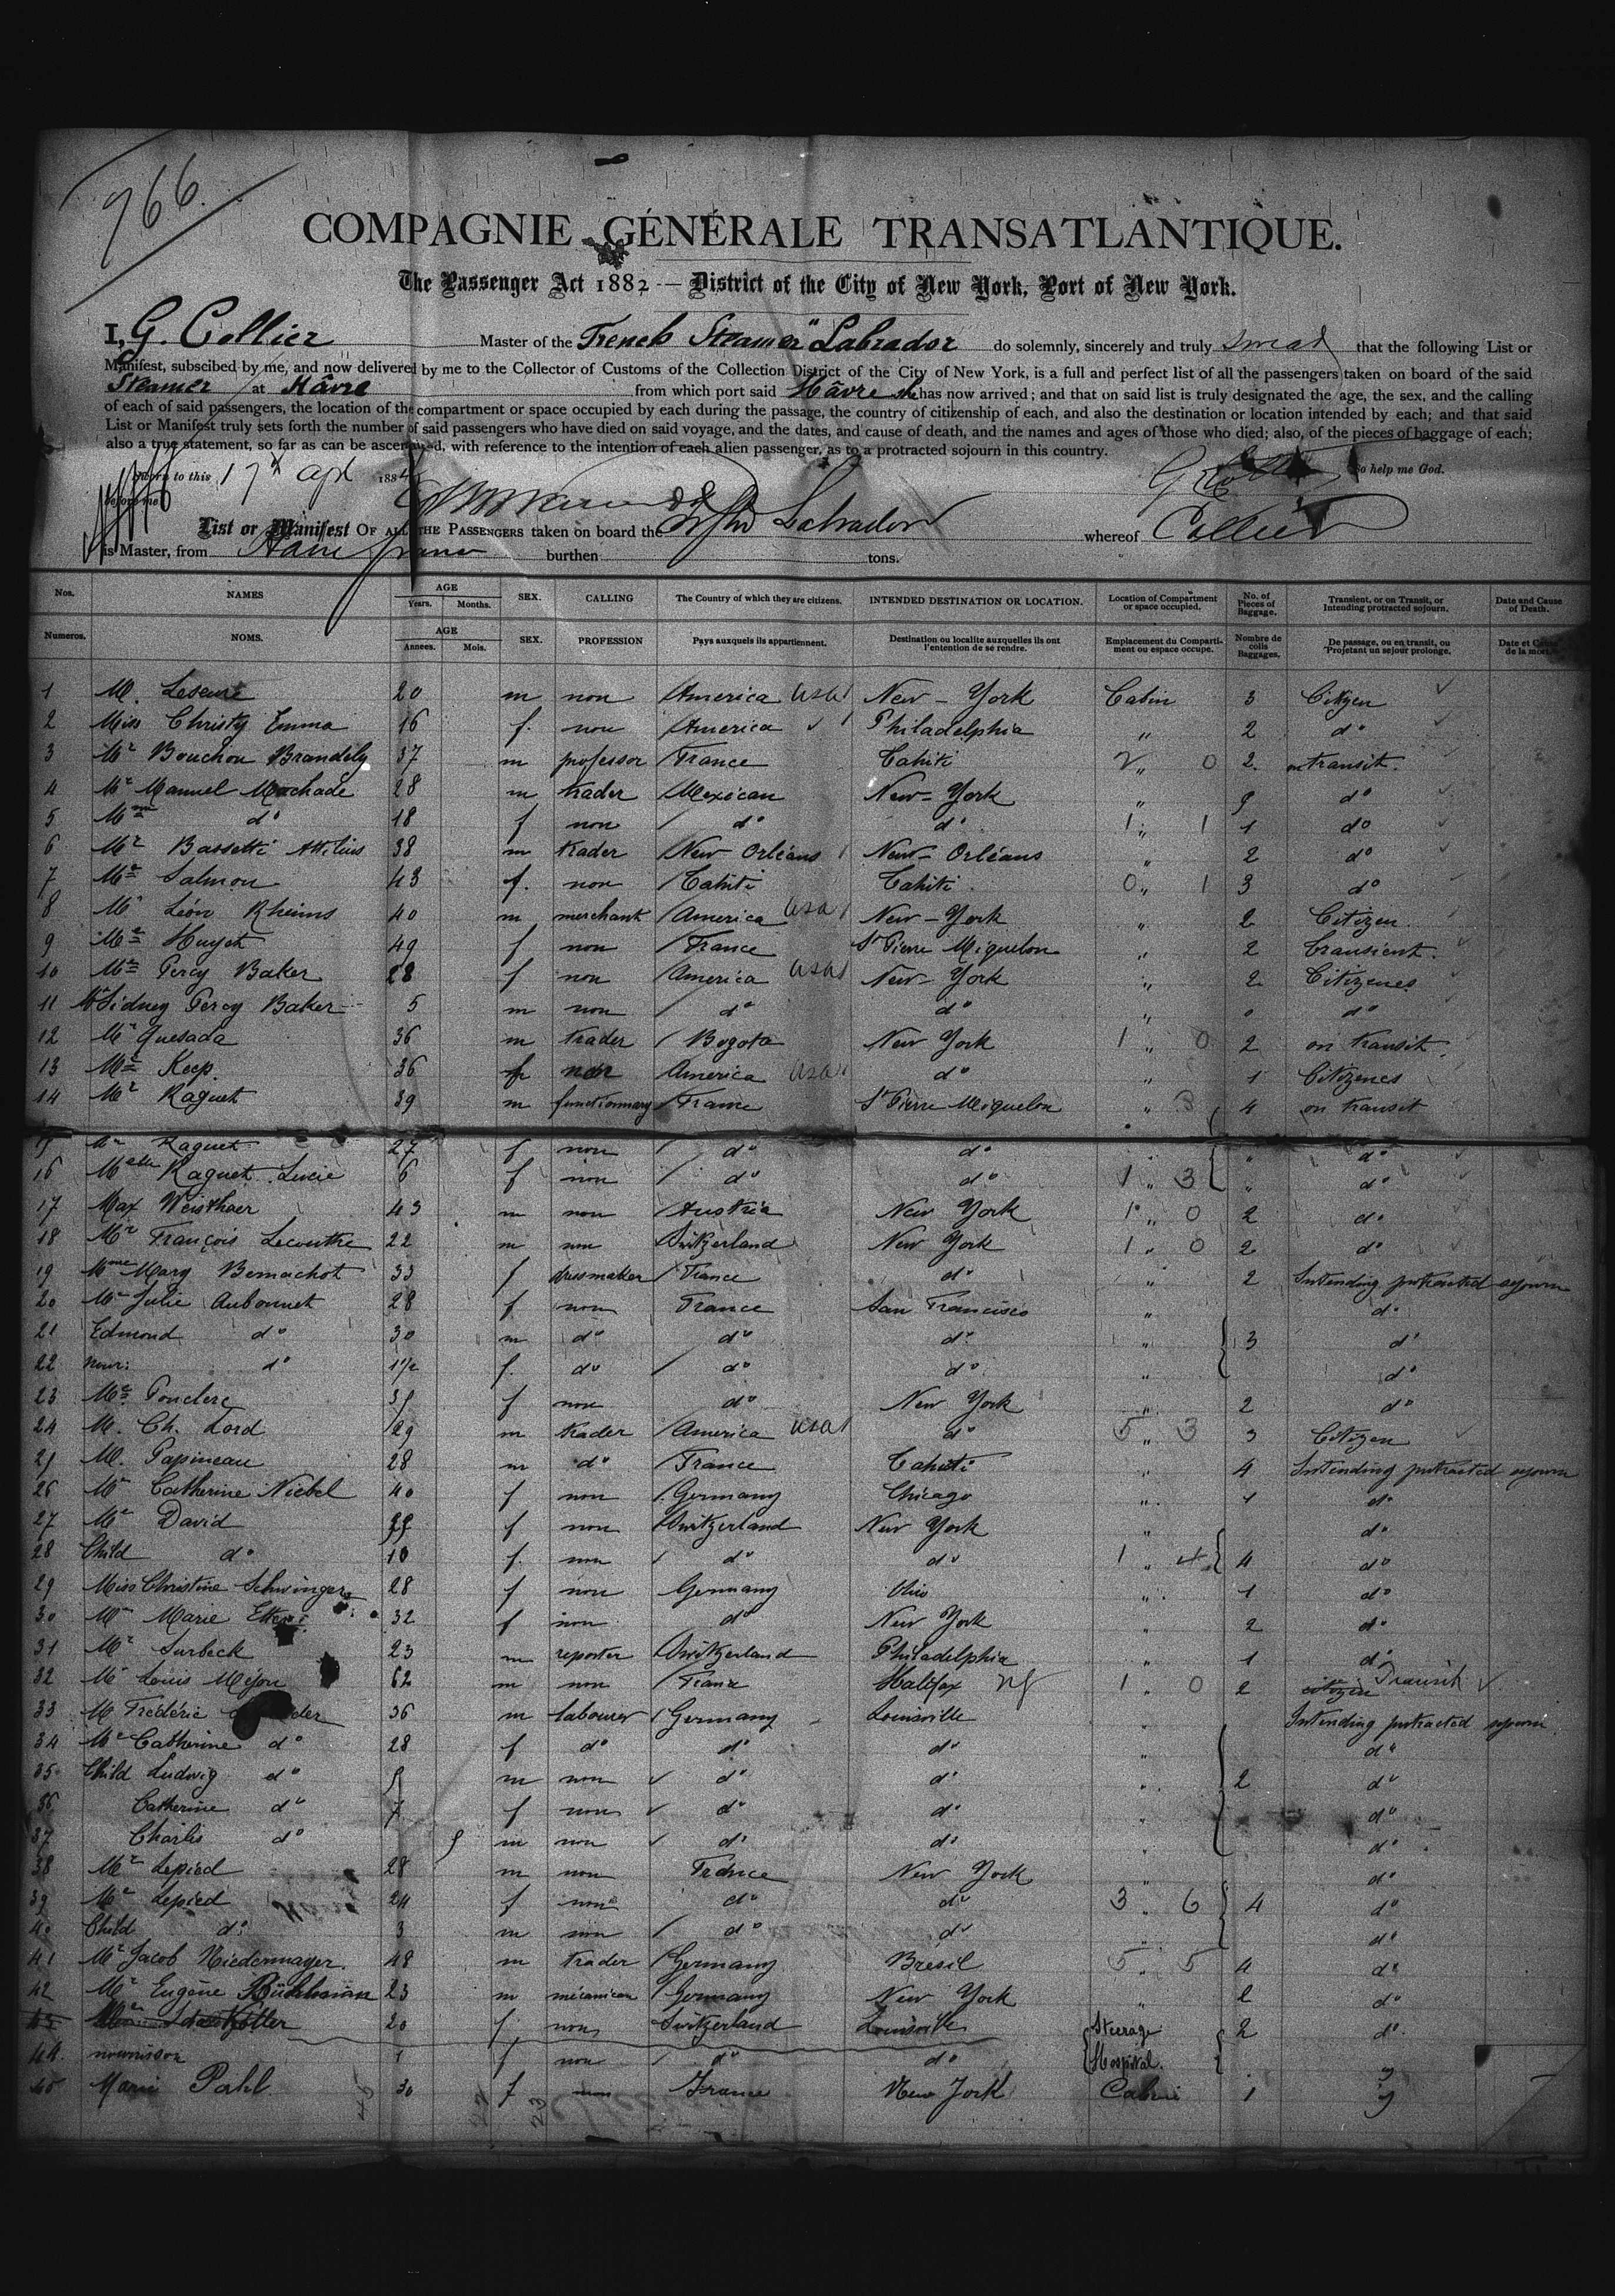 766.
COMPAGNIE GÉNÉRALE TRANSATLANTIQUE.
The Passenger Act 1882 — District of the City of New York, Port of New York.
I, G. Collier Master of the French Steamer "Labrador do solemnly, sincerely and truly swear that the following List or
Manifest, subscibed by me, and now delivered by me to the Collector of Customs of the Collection District of the City of New York, is a full and perfect list of all the passengers taken on board of the said
Steamer at Hâvre from which port said Hâvre she has now arrived; and that on said list is truly designated the age, the sex, and the calling
of each of said passengers, the location of the compartment or space occupied by each during the passage, the country of citizenship of each, and also the destination or location intended by each; and that said
List or Manifest truly sets forth the number of said passengers who have died on said voyage, and the dates, and cause of death, and the names and ages of those who died; also, of the pieces of baggage of each;
also a true statement, so far as can be ascertained, with reference to the intention of each alien passenger, as to a protracted sojourn in this country.
Sworn to this 17th Apl 1884 So help me God.
before me
List or Manifest OF ALL THE PASSENGERS taken on board the Labrador whereof Collier
is Master, from Havre France burthen tons.
Nos. NAMES AGE Years. Months. SEX. CALLING The Country of which they are citizens. INTENDED DESTINATION OR LOCATION. Location of Compartment or space occupied. No. of Pieces of Baggage. Transient, or on Transit, or Intending protracted sejourn. Date and Cause of Death.
Numeros. NOMS. AGE Années. Mois. SEX. PROFESSION Pays auxquels ils appartiennent. Destination ou localite auxquelles ils ont l'entention de se rendre. Emplacement du Compartiment ou espace occupe. Nombre de colis Baggages. De passage, ou en transit, ou Projetant un sejour prolonge. Date et Cause de la mort.
1 M. Leseure 20 m non America USA New-York Cabin 3 Citizen
2 Miss Christy Emma 16 f. non America Philadelphia " 2 do
3 Mr Bouchon Brandely 37 m professor France Tahiti 2 " 0 2 on transit.
4 Mr Manuel Machado 28 m trader Mexican New-York " 9 do
5 Mme do 18 f non do do 1 " 1 1 do
6 Mr Bassetti Attilius 38 m trader New Orléans New-Orléans " 2 do
7 Me Salmon 43 f. non Tahiti Tahiti 0 " 1 3 do
8 Mr Léon Rheims 40 m merchant America USA New-York " 2 Citizen
9 Me Huyet 49 f non France St Pierre Miquelon " 2 transient.
10 Me Percy Baker 28 f non America USA New-York " 2 Citizenes
11 Mr Sidney Percy Baker 5 m non do do " " do
12 Mr Quesada 36 m trader Bogota New York 1 " 0 2 on transit.
13 Me Keep. 36 f non America USA do " 1 Citizenes
14 Mr Raguet 39 m functionnary France St Pierre Miquelon " 3 4 on transit
15 Me Raguet 27 f non do do " " do
16 Melle Raguet Lucie 6 f non do do 1 " 3 " do
17 Max Weisthaer 43 m non Austria New York 1 " 0 2 do
18 Mr François Lecoultre 22 m non Switzerland New York 1 " 0 2 do
19 Mme Mary Bernachot 33 f dressmaker France do " 2 Intending protracted sejourn
20 Me Julie Aubonnet 28 f non France San Francisco " do
21 Edmond do 30 m do do do " 3 do
22 nour: do 1 1/2 f. do do do " do
23 Me Ponclere f non do New York " 2 do
24 M. Ch. Lord 29 m trader America USA do 5 " 3 3 Citizen
25 M. Papineau 28 m do France Tahiti " 4 Intending protracted sejourn
26 Me Catherine Niebel 40 f non Germany Chicago " 1 do
27 Me David f non Switzerland New York " do
28 Child do 10 f. non do do 1 " 4 4 do
29 Miss Christine Schwinger 28 f non Germany Ohio " 1 do
30 Me Marie 32 f non do New York " 2 do
31 Mr Surbeck 23 m reporter Switzerland Philadelphia " 1 do
32 Mr Louis Méjou 62 m non France Halifax 1 " 0 2 citizen Transit
33 M Frédéric 36 m labourer Germany Louisville " Intending protracted sejourn
34 Me Catherine do 28 f do do do " do
35 Child Ludwig do 9 m non do do " 2 do
36 Catherine do 7 f non do do " do
37 Charlis do 9 m non do do " do
38 Mr Lepied 28 m non France New York " do
39 Me Lepied 24 f non do do 3 " 6 4 do
40 Child do 3 m non do do " do
41 Mr Jacob Niedermayer. 48 m trader Germany Brésil 5 " 5 4 do
42 Mr Eugène Bühlmann 23 m mécanicien Germany New York " 2 do
43 Me Keller 20 f. non Switzerland Louisville Steerage 2 do
44. nourrisson 1 f non do do Hospital.
45 Marie Pahl 30 f non France New York Cabin 1